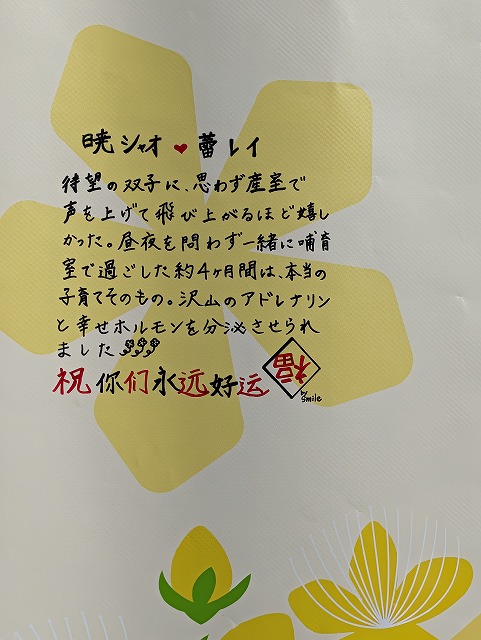 暁シャオ♥蕾レイ
待望の双子に、思わず産室で
声を上げて飛び上がるほど嬉し
かった。昼夜を問わず一緒に哺育
室で過ごした約4ヶ月間は、本当の
子育てそのもの。沢山のアドレナリン
と幸せホルモンを分泌させられ
ました
祝你们永远好运
福
by
Smile